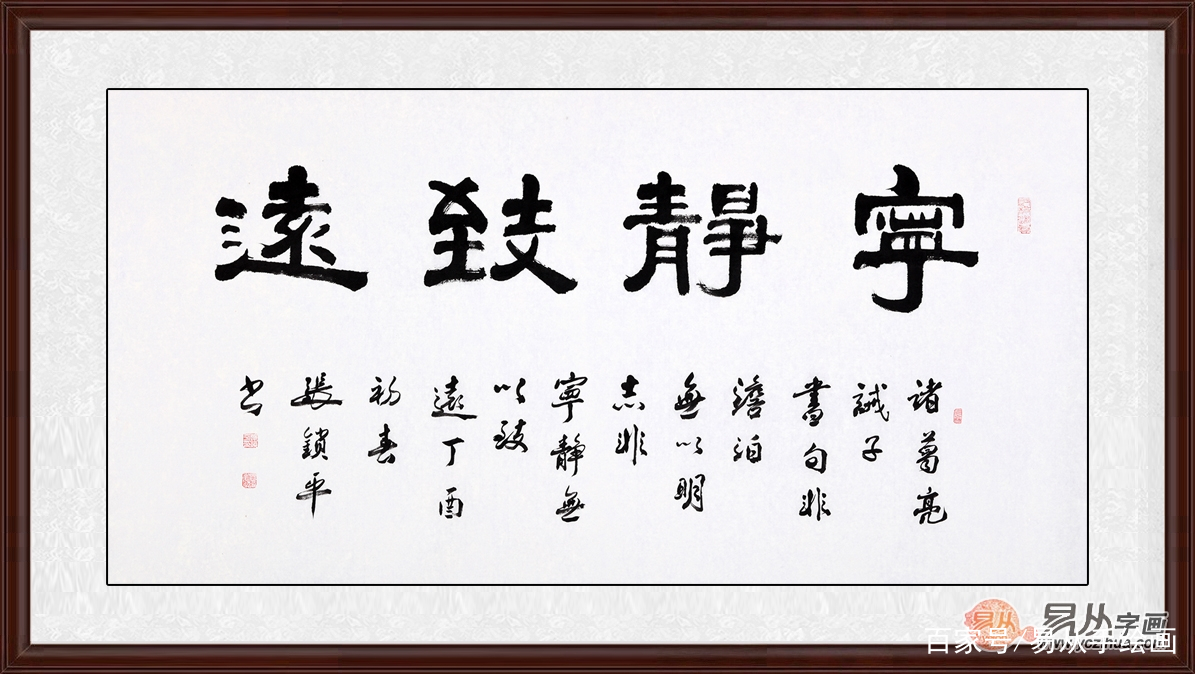 寧靜致遠
諸葛亮
誡子
書句非
澹泊
無以明
志非
寧靜無
以致
遠丁酉
初春
張鎖平
书
易从
易从字画
百家号/易从手绘画